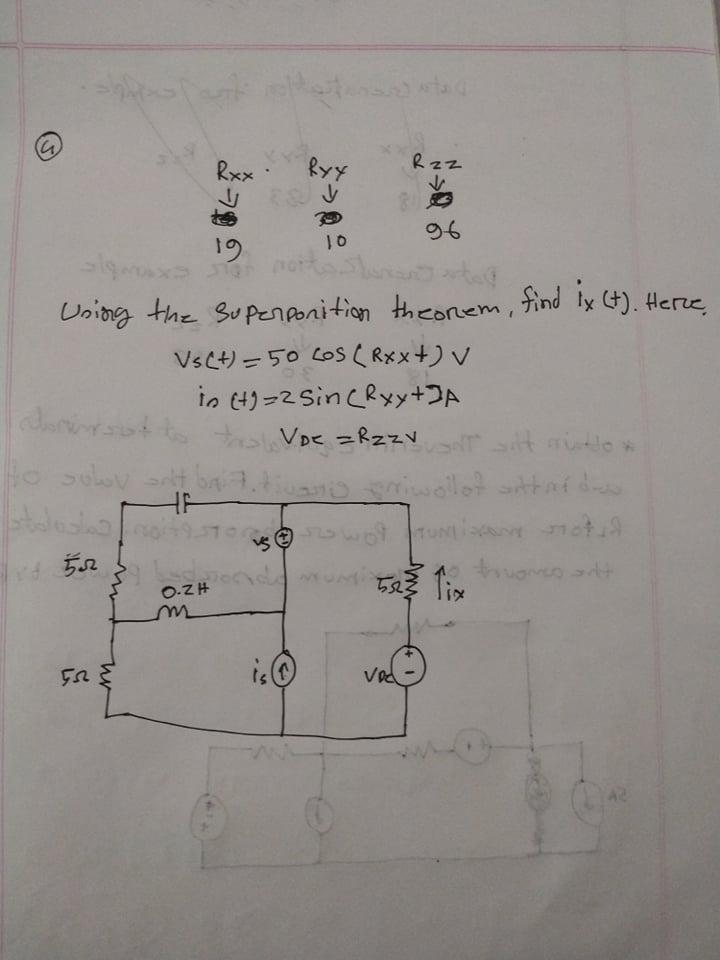 4
Rxx . Ryy Rzz
↓ ↓ ↓
19 10 96
Using the Superposition theorem, find ix(t). Here,
Vs(t) = 50 cos(Rxxt) V
is(t) = 2 sin(Ryyt)A
VDC = RzzV
vs
5Ω
0.2H
5Ω ↑ix
5Ω
is
VDC